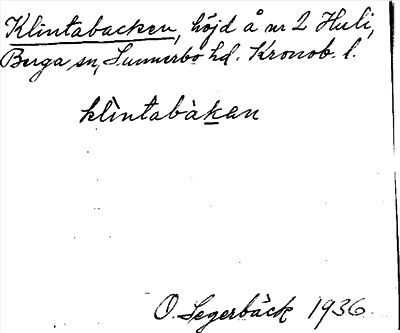 Klintabacken, höjd å nr 2 Huli,
Berga sn, Sunnerbo hd. Kronob. l.
klìntabàkan
O. Segerbäck 1936.